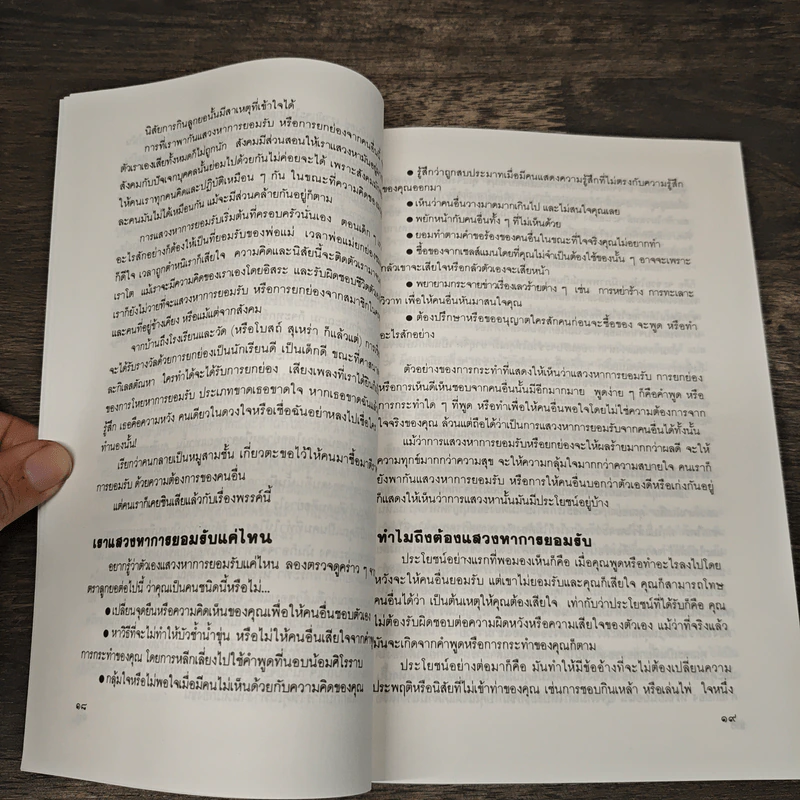 นิสัยการกินลูกยอนั้นมีสาเหตุที่เข้าใจได้
การที่เราพากันแสวงหาการยอมรับ หรือการยกย่องจากคนอื่นนั้น
ตัวเราเองเสียทั้งหมดก็ไม่ถูกนัก สังคมมีส่วนสอนให้เราแสวงหามันอยู่
สังคมกับปัจเจกบุคคลนั้นย่อมไปด้วยกันไม่ค่อยจะได้ เพราะสังคม
ให้คนเราทุกคนคิดและปฏิบัติเหมือน ๆ กัน ในขณะที่ความคิดของ
ละคนมันไม่ได้เหมือนกัน แม้จะมีส่วนคล้ายกันอยู่ก็ตาม
การแสวงหาการยอมรับเริ่มต้นที่ครอบครัวนั่นเอง ตอนเด็ก ๆ
อะไรสักอย่างก็ต้องให้เป็นที่ยอมรับของพ่อแม่ เวลาพ่อแม่ยกย่อง
ก็ดีใจ เวลาถูกตำหนิเราก็เสียใจ ความคิดและนิสัยนี้จะติดตัวเรามา
เราโต แม้เราจะมีความคิดของเราเองโดยอิสระ และรับผิดชอบชีวิตตัวเอง
เราก็ยังไม่วายที่จะแสวงหาการยอมรับ หรือการยกย่องจากสมาชิกใน
และคนที่อยู่ข้างเคียง หรือแม้แต่จากสังคม
จากบ้านถึงโรงเรียนและวัด (หรือโบสถ์ สุเหร่า ก็แล้วแต่)
จะได้รับรางวัลด้วยการยกย่องเป็นนักเรียนดี เป็นเด็กดี ขณะที่ศาสนา
ละกิเลสตัณหา ใครทำได้จะได้รับการยกย่อง เสียงเพลงที่เราได้ยิน
ของการโหยหาการยอมรับ ประเภทขาดเธอขาดใจ หากเธอขาดฉัน
รู้สึก เธอคือความหวัง คนเดียวในดวงใจหรือเชื่อฉันอย่าหลงไปเชื่อใคร
ทำนองนั้น!
เรียกว่าคนกลายเป็นหมูสามชั้น เกี่ยวตะขอไว้ให้คนมาซื้อ
การยอมรับ ด้วยความต้องการของคนอื่น
แต่คนเราก็เคยชินเสียแล้วกับเรื่องพรรค์นี้
เราแสวงหาการยอมรับแค่ไหน
อยากรู้ว่าตัวเองแสวงหาการยอมรับแค่ไหน ลองตรวจดูคร่าว ๆ
ตราลูกยอต่อไปนี้ ว่าคุณเป็นคนชนิดนี้หรือไม่...
● เปลี่ยนจุดยืนหรือความคิดเห็นของคุณเพื่อให้คนอื่นชอบตัวเอง
● หาวิธีที่จะไม่ทำให้บัวช้ำน้ำขุ่น หรือไม่ให้คนอื่นเสียใจจาก
การกระทำของคุณ โดยการหลีกเลี่ยงไปใช้คำพูดที่นอบน้อมศิโรราบ
● กลุ้มใจหรือไม่พอใจเมื่อมีคนไม่เห็นด้วยกับความคิดของคุณ
๑๘
● รู้สึกว่าถูกสบประมาทเมื่อมีคนแสดงความรู้สึกที่ไม่ตรงกับความรู้สึก
ของคุณออกมา
● เห็นว่าคนอื่นวางมาดมากเกินไป และไม่สนใจคุณเลย
● พยักหน้ากับคนอื่นทั้ง ๆ ที่ไม่เห็นด้วย
● ยอมทำตามคำขอร้องของคนอื่นในขณะที่ใจจริงคุณไม่อยากทำ
● ซื้อของจากเซลส์แมนโดยที่คุณไม่จำเป็นต้องใช้ของนั้น ๆ อาจจะเพราะ
กลัวเขาจะเสียใจหรือกลัวตัวเองจะเสียหน้า
● พยายามกระจายข่าวเรื่องเลวร้ายต่าง ๆ เช่น การหย่าร้าง การทะเลาะ
วิวาท เพื่อให้คนอื่นหันมาสนใจคุณ
● ต้องปรึกษาหรือขออนุญาตใครสักคนก่อนจะซื้อของ จะพูด หรือทำ
อะไรสักอย่าง
ตัวอย่างของการกระทำที่แสดงให้เห็นว่าแสวงหาการยอมรับ การยกย่อง
หรือการเห็นดีเห็นชอบจากคนอื่นนั้นมีอีกมากมาย พูดง่าย ๆ ก็คือคำพูด หรือ
การกระทำใด ๆ ที่พูด หรือทำเพื่อให้คนอื่นพอใจโดยไม่ใช่ความต้องการจาก
ใจจริงของคุณ ล้วนแต่ถือได้ว่าเป็นการแสวงหาการยอมรับจากคนอื่นได้ทั้งนั้น
แม้ว่าการแสวงหาการยอมรับหรือยกย่องจะให้ผลร้ายมากกว่าผลดี จะให้
ความทุกข์มากกว่าความสุข จะให้ความกลุ้มใจมากกว่าความสบายใจ คนเราก็
ยังพากันแสวงหาการยอมรับ หรือการให้คนอื่นบอกว่าตัวเองดีหรือเก่งกันอยู่
ก็แสดงให้เห็นว่าการแสวงหานั้นมันมีประโยชน์อยู่บ้าง
ทำไมถึงต้องแสวงหาการยอมรับ
ประโยชน์อย่างแรกที่พอมองเห็นก็คือ เมื่อคุณพูดหรือทำอะไรลงไปโดย
หวังจะให้คนอื่นยอมรับ แต่เขาไม่ยอมรับและคุณก็เสียใจ คุณก็สามารถโทษ
คนอื่นได้ว่า เป็นต้นเหตุให้คุณต้องเสียใจ เท่ากับว่าประโยชน์ที่ได้รับก็คือ คุณ
ไม่ต้องรับผิดชอบต่อความผิดหวังหรือความเสียใจของตัวเอง แม้ว่าที่จริงแล้ว
มันจะเกิดจากคำพูดหรือการกระทำของคุณก็ตาม
ประโยชน์อย่างต่อมาก็คือ มันทำให้มีข้ออ้างที่จะไม่ต้องเปลี่ยนความ
ประพฤติหรือนิสัยที่ไม่เข้าท่าของคุณ เช่นการชอบกินเหล้า หรือเล่นไพ่ ใจหนึ่ง
๑๙